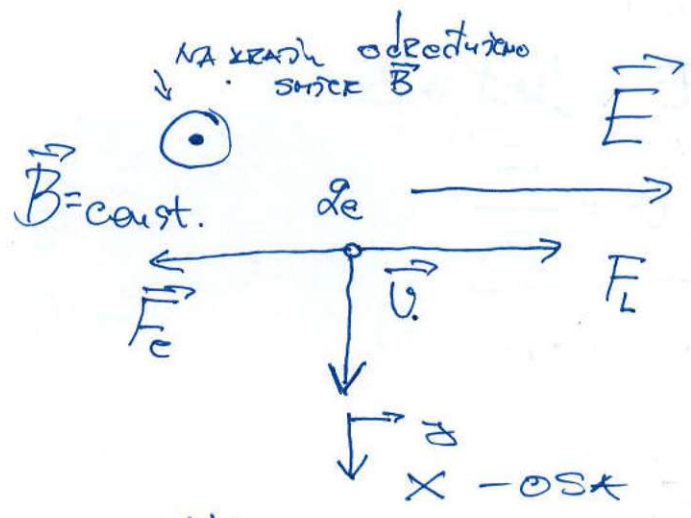 NA KRAJU određujemo
smjer B
E
B = const.
qe
Fe
v.
FL
y
X - OSA